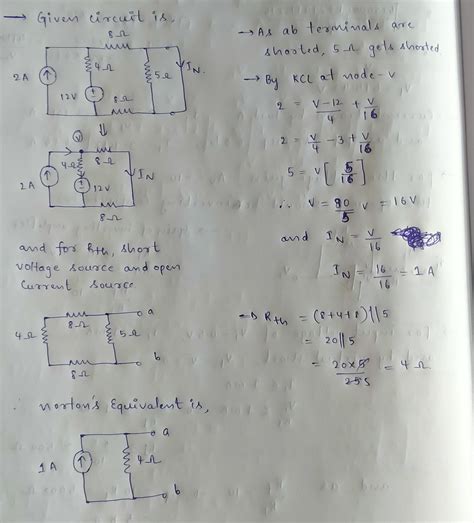 → Given circuit is,
8Ω
2A
4Ω
12V
8Ω
5Ω
I_N
⇓
V
4Ω
8Ω
2A
12V
I_N
8Ω
and for Rth, short
voltage source and open
current source
8Ω
4Ω
5Ω
a
b
8Ω
∴ Norton's Equivalent is,
1A
4Ω
a
b
→ As ab terminals are
shorted, 5Ω gets shorted
→ By KCL at node-v
2 = V-12/4 + V/16
2 = V/4 - 3 + V/16
5 = V[5/16]
∴ V = 80/5 V = 16V
and I_N = V/16
I_N = 16/16 = 1A
→ Rth = (8+4+8)||5
= 20||5
= 20×5/25 = 4Ω